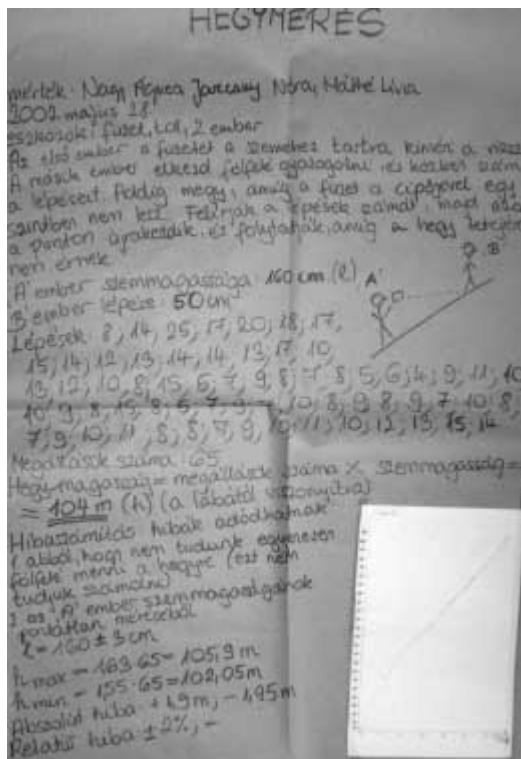 HEGYMÉRÉS
mérték: Nagy Nóra, Máthé Lívia
2002 május 28.
eszközök: füzet, toll, 2 ember
Az első ember a füzetet a szeméhez tartva kiméri a
A másik ember elkezd felfelé gyalogolni, és közben
a lépéseit. Addig megy, amíg a füzet a cipőjével egy
szintben nem lesz. Felírják a lépések számát, majd
a ponton újrakezdik, és folytatják, amíg a hegy tetejére
nem érnek.
'A' ember szemmagassága: 160 cm (l)
'B' ember lépése: 50 cm
A
B
Lépések: 8, 14, 25, 17, 20, 18, 17,
15, 14, 12, 13, 14, 14, 13, 17, 10,
13, 12, 10, 8, 15, 6, 7, 9, 8, 7, 8, 5, 6, 4, 9, 11, 10
10, 9, 8, 8, 10, 8, 9, 8, 9, 7, 10, 8,
7, 9, 10, 11, 8, 8, 7, 9, 10, 11, 10, 12, 13, 15, 14
Megállások száma: 65
Hegymagasság = megállások száma × szemmagasság =
= 104 m (h) (a lábától viszonyítva)
Hibaszámítás hibák adódhatnak
1 abból, hogy nem tudunk egyenesen
fölfelé menni a hegyre (ezt nem
tudjuk számolni)
2 az 'A' ember szemmagasságának
pontatlan méréséből
l = 160 ± 3 cm
h max = 163·65 = 105,9 m
h min = 155·65 = 102,05 m
Abszolút hiba +1,9 m, -1,95 m
Relatív hiba ±2%, -